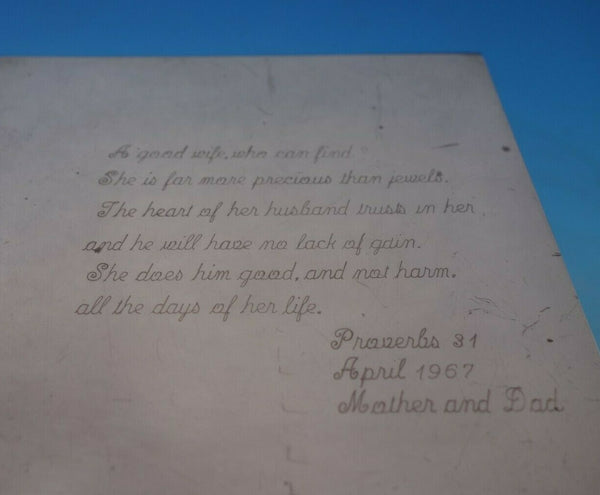 A good wife, who can find?
She is far more precious than jewels.
The heart of her husband trusts in her,
and he will have no lack of gain.
She does him good, and not harm.
all the days of her life.
Proverbs 31
April 1967
Mother and Dad